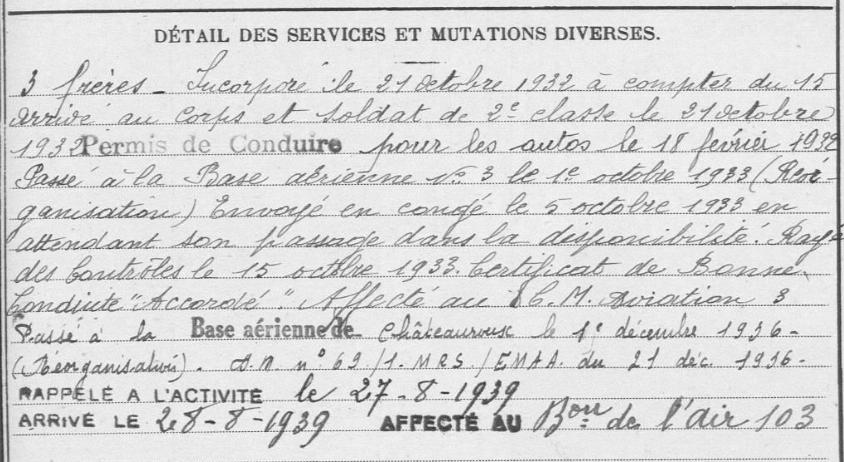 DÉTAIL DES SERVICES ET MUTATIONS DIVERSES.
3 frères - Incorporé le 21 octobre 1932 à compter du 15
arrivé au corps et soldat de 2e classe le 21 octobre
1932 Permis de Conduire pour les autos le 18 février 1932
Passé à la Base aérienne No 3 le 1e octobre 1933 (Réor-
ganisation) Envoyé en congé le 5 octobre 1933 en
attendant son passage dans la disponibilité. Rayé
des Contrôles le 15 octobre 1933. Certificat de Bonne
Conduite "Accordé" Affecté au C. M. Aviation 3
Passé à la Base aérienne de Châteauroux le 1e décembre 1936 -
(Réorganisation). D.M. n° 69/1. MRS./EMAA. du 21 déc. 1936 -
RAPPELÉ A L'ACTIVITÉ le 27-8-1939
ARRIVÉ LE 28-8-1939 AFFECTÉ AU Bon de l'air 103